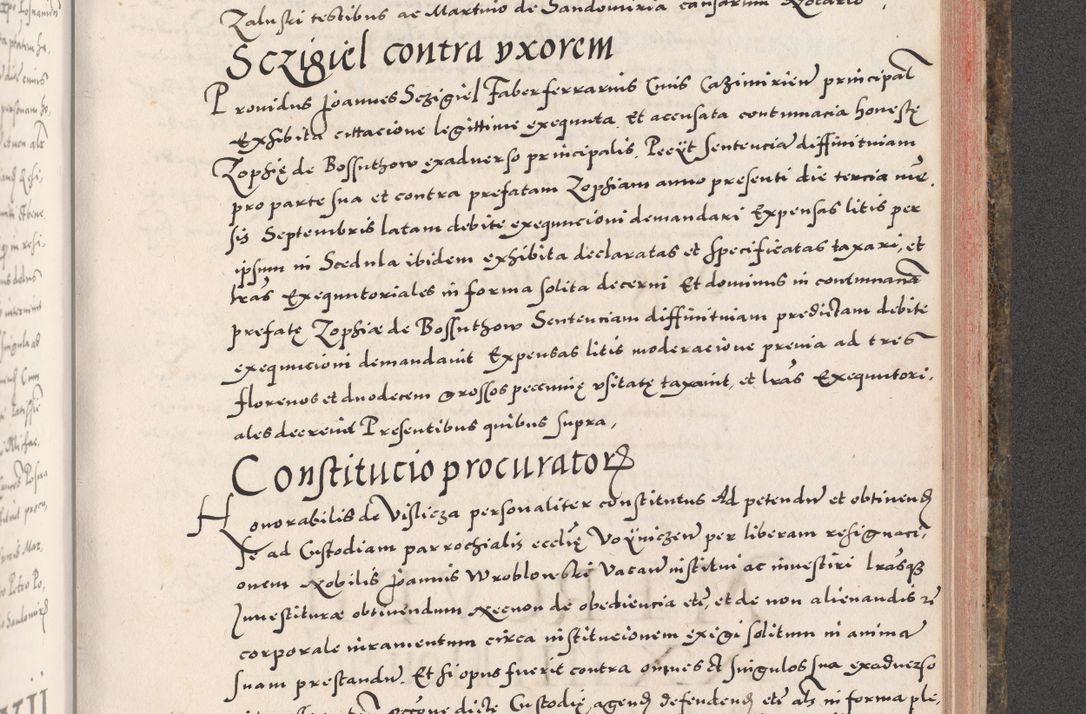 Zaluski testibus ac Martino de Sandomiria causarum Notario
Sczigiel contra vxorem
Prouidus Joannes Sczigiel Faber ferrarius Ciuis Cazimirien̄ principal
Exhibita cittacione legittime exequuta. Et accusata contumacia honestę
Zophię de Bossuthow exaduerso principalis. Peeÿt sentenciā diffinitiuam
pro parte sua et contra prefatam Zophiam anno presenti die tercia me͂.
sis Septembris latam debitę exequucioni demandari Expensas litis per
ipsum in Scedula ibidem exhibita declaratas et specificatas taxari, et
lrãs Exequutoriales in forma solita decerni Et dominus in contumaciã
prefatę Zophiæ de Bossuthow Sentenciam diffinitiuam predictam debitę
exequucioni demandauit Expensas litis moderacione preuia ad tres
florenos et duodecem grossos pecunię vsitatę taxauit, et lrãs Exequutori,
ales decreuit Presentibus quibus supra,
Constitucio procurator
Honorabilis de Vislicza personaliter constitutus Ad petendū et obtinend
se ad Custodiam parrochialis ecclię Voÿniczen̄ per liberam resignaci,
onem Nobilis Joannis Wroblowski Vacan̄ institui ac inuestiri lrãsque
Inuestituræ obtinendum Necnon de obediencia etc, et de non alienandis
corporale iuramentum circa institucionem exigi solitum in animā
suam prestandū. Et si opus fuerit contra omnes et singulos sua exaduerso
dictę Custodię agend defendend etc als in forma ple,